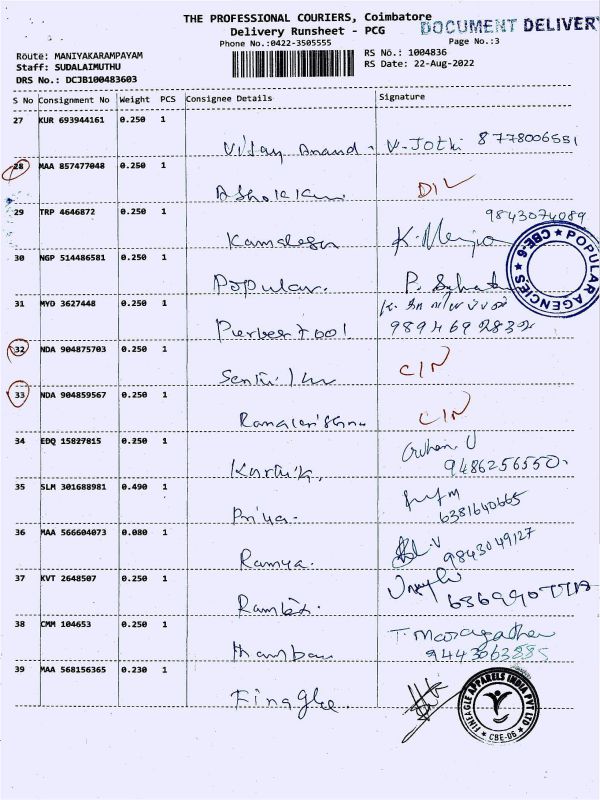 THE PROFESSIONAL COURIERS, Coimbatore
DOCUMENT DELIVERY
Delivery Runsheet - PCG
Phone No.:0422-3505555
Page No.:3
Route: MANIYAKARAMPAYAM
RS No.: 1004836
Staff: SUDALAIMUTHU
RS Date: 22-Aug-2022
DRS No.: DCJB100483603
S No Consignment No Weight PCS Consignee Details Signature
27 KUR 693944161 0.250 1
Vijay Anand. V-Jothi 8778006551
28 MAA 857477048 0.250 1
D/L
29 TRP 4646872 0.250 1
9843074089
30 NGP 514486581 0.250 1
Popular. P.
POPULAR AGENCIES ★ CBE-6 ★
31 MYD 3627448 0.250 1
9894692832
32 NDA 904875703 0.250 1
C/N
33 NDA 904859567 0.250 1
Ramakrishna C/N
34 EDQ 15827815 0.250 1
Karthik. 9486256550.
35 SLM 301688981 0.490 1
Priya. 6381640665
36 MAA 566604073 0.080 1
Ramya. 9843049127
37 KVT 2648507 0.250 1
38 CMM 104653 0.250 1
T. 9443063885
39 MAA 568156365 0.230 1
FINEAGLE APPARELS INDIA PVT LTD
★ CBE-06 ★